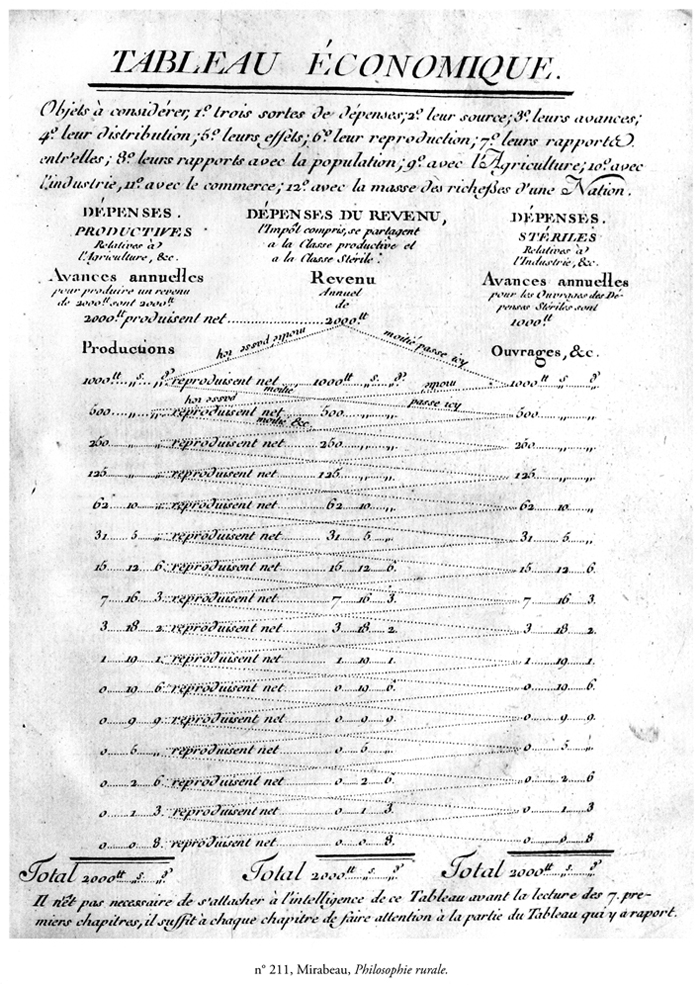 TABLEAU ÉCONOMIQUE.
Objets à considérer, 1.º trois sortes de dépenses; 2.º leur source; 3.º leurs avances;
4.º leur distribution; 5.º leurs effets; 6.º leur reproduction; 7.º leurs rapports
entr'elles; 8.º leurs rapports avec la population; 9.º avec l'Agriculture; 10.º avec
l'industrie, 11.º avec le commerce; 12.º avec la masse des richesses d'une Nation.
DÉPENSES. DÉPENSES DU REVENU, DÉPENSES.
PRODUCTIVES l'Impôt compris, se partagent STÉRILES
Relatives à a la Classe productive et Relatives à
l'Agriculture, &c. a la Classe Stérile. l'Industrie, &c.
Avances annuelles Revenu Avances annuelles
pour produire un revenu Annuel pour les Ouvrages des Dé-
de 2000tt sont 2000tt de penses Stériles sont
2000tt produisent net 2000tt 1000tt
moitié passe icy moitié passe icy
Productions Ouvrages, &c.
1000tt „s. „d reproduisent net 1000tt „s. „d 1000tt „s „d
moitié moitié
passe icy passe icy
500 „ „ reproduisent net 500 „ „ 500 „ „
moitié &c.
250 „ „ reproduisent net 250 „ „ 250 „ „
125 „ „ reproduisent net 125 „ „ 125 „ „
62 10 „ reproduisent net 62 10 „ 62 10 „
31 5 „ reproduisent net 31 5 „ 31 5 „
15 12 6 reproduisent net 15 12 6. 15 12 6.
7 16 3 reproduisent net 7 16 3. 7 16 3.
3 18 2 reproduisent net 3 18 2. 3 18 2.
1 19 1 reproduisent net 1 19 1. 1 19 1.
0 19 6 reproduisent net 0 19 6. 0 19 6.
0 9 9 reproduisent net 0 9 9. 0 9 9.
0 5 „ reproduisent net 0 5 „ 0 5 „
0 2 6 reproduisent net 0 2 6. 0 2 6
0 1 3 reproduisent net 0 1 3. 0 1 3
0 0 8 reproduisent net 0 0 8. 0 0 8
Total 2000tt „s. „d Total 2000tt „s. „d Total 2000tt „s. „d
Il n'est pas necessaire de s'attacher à l'intelligence de ce Tableau avant la lecture des 7. pre-
miers chapitres, il suffit à chaque chapitre de faire attention à la partie du Tableau qui y a raport.
n° 211, Mirabeau, Philosophie rurale.